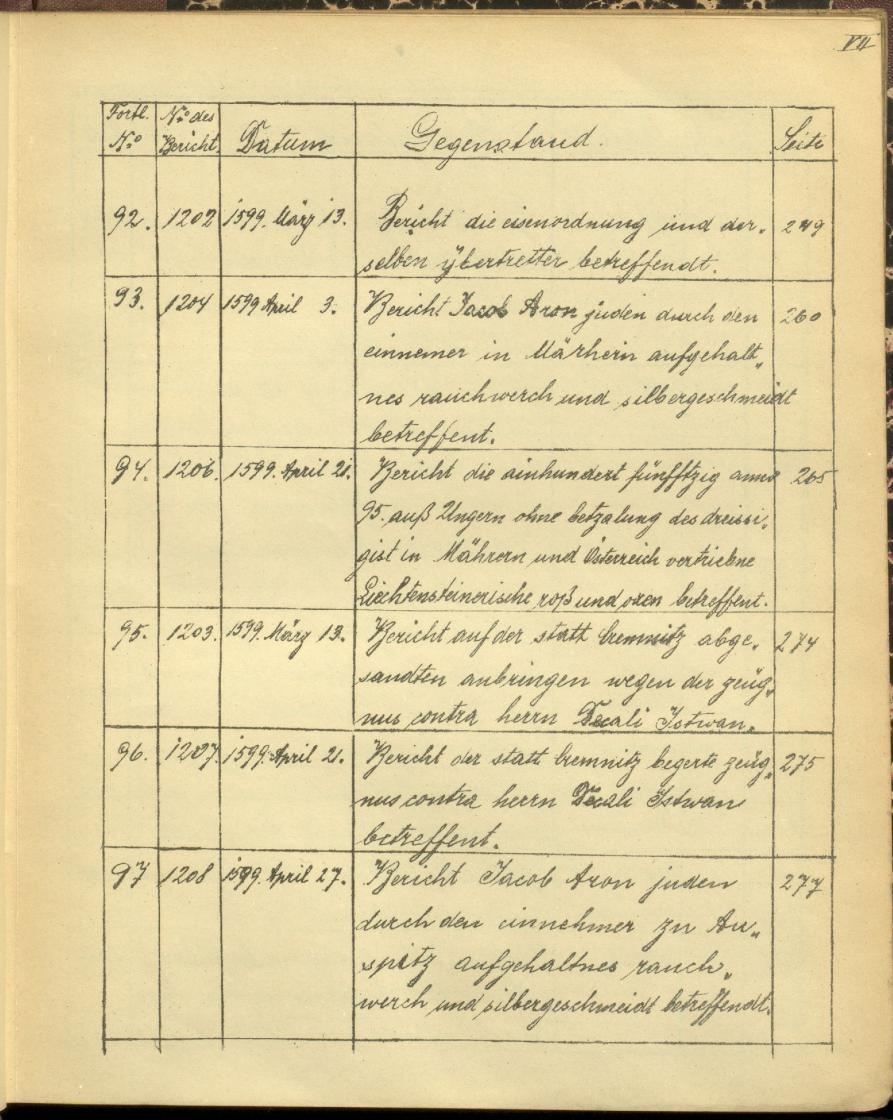 VII
Fortl. No des
No Bericht. Datum Gegenstand. Seite
92. 1202 1599. März 13. Bericht die eisenordnung und der„ 249
selben ÿbertretter betreffendt.
93. 1204 1599 April 3. Bericht Jacob Aron juden durch den 260
einnemer in Märhern aufgehalt„
nes rauchwerch und silbergeschmeidt
betreffent.
94. 1206. 1599. April 21. Bericht die ainhundert fünfftzig anno 265
95. auß Ungern ohne betzalung des dreissi„
gist in Mährern und Österreich vertriebne
Liechtensteinerische roß und oxen betreffent.
95. 1203. 1599. März 13. Bericht auf der statt Cremnitz abge„ 274
sandten anbringen wegen der zeüg„
nus contra herrn Decali Istwan.
96. 1207. 1599. April 21. Bericht der statt Cremnitz begerte zeüg„ 275
nus contra herrn Decali Istwan
betreffent.
97 1208 1599. April 27. Bericht Jacob Aron juden 277
durch den einnehmer zu Au„
spitz aufgehaltnes rauch„
werch und silbergeschmeidt betreffendt.